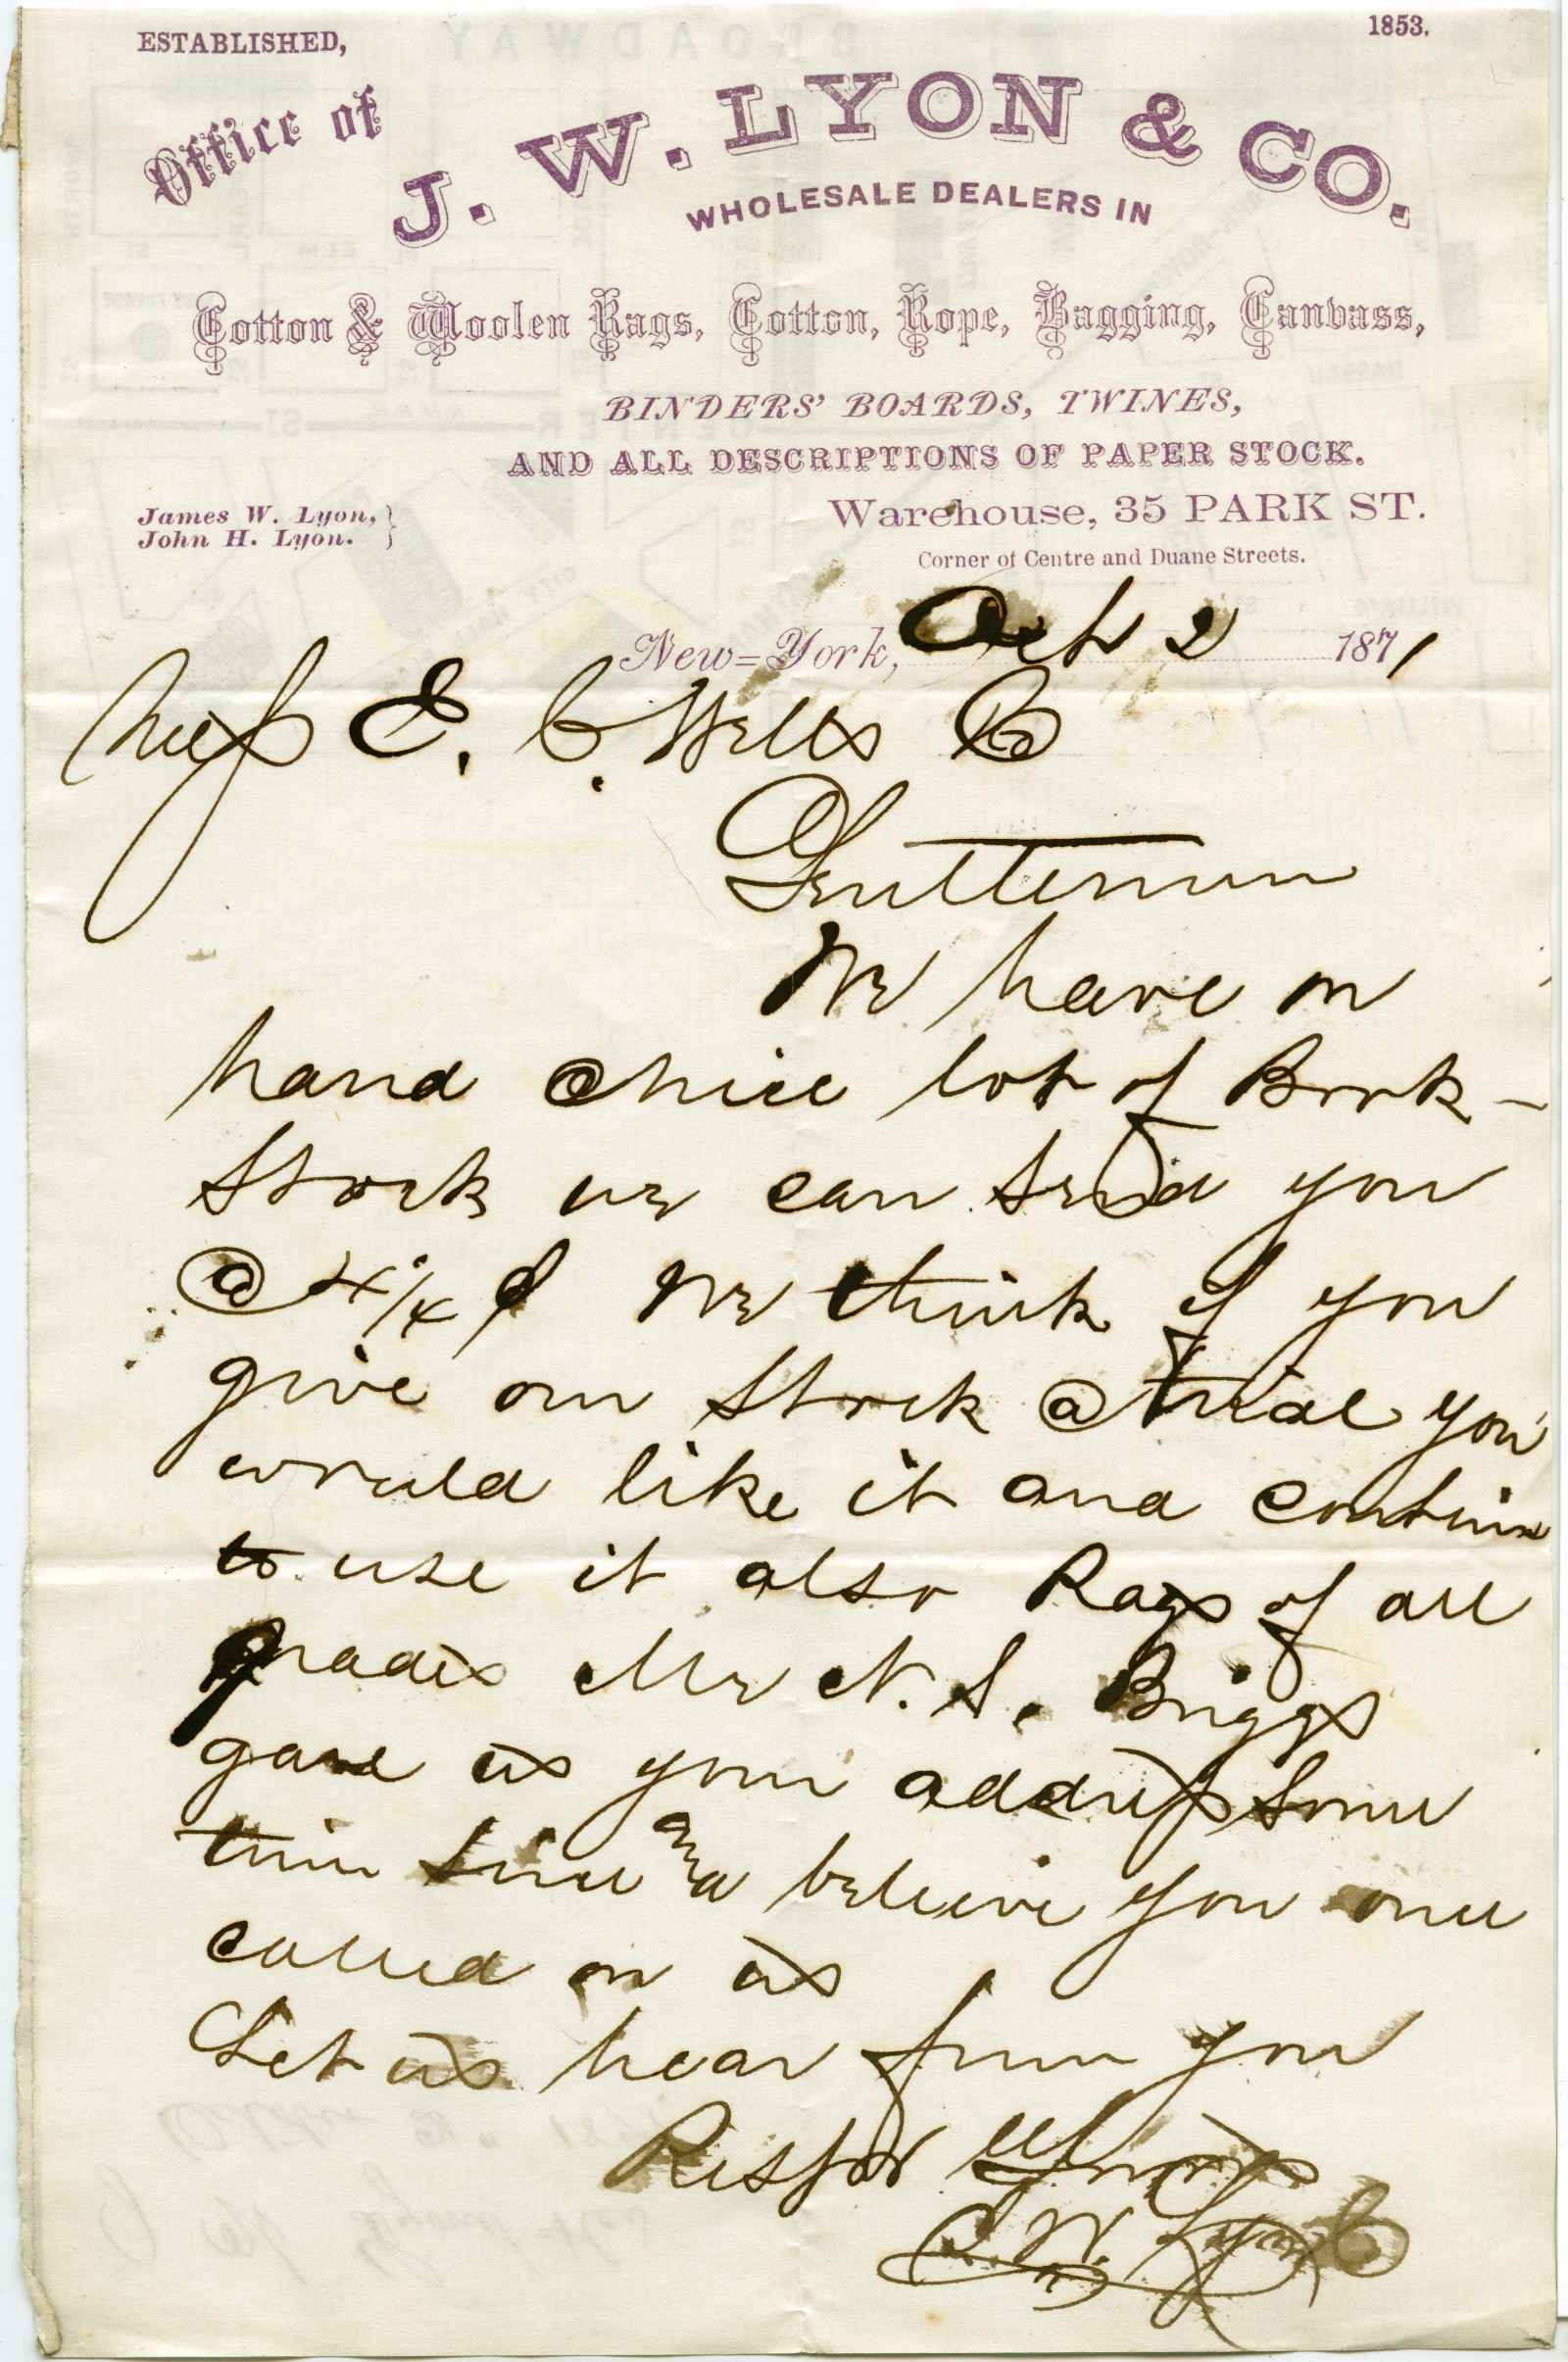 ESTABLISHED, 1853.
Office of
J. W. LYON & CO.
WHOLESALE DEALERS IN
Cotton & Woolen Rags, Cotton, Rope, Bagging, Canvass,
BINDERS' BOARDS, TWINES,
AND ALL DESCRIPTIONS OF PAPER STOCK.
James W. Lyon,
John H. Lyon.
Warehouse, 35 PARK ST.
Corner of Centre and Duane Streets.
New=York, Oct 2 1871
Mess E. C. Wells Co
Gentlemen
We have on
hand a nice lot of Book-
Stock we can send you
@ 4 1/4 ¢ We think if you
give our Stock a trial you
would like it and continue
to use it also Rags of all
grades Mr N. S. Briggs
gave us your address some
time since and believe you once
called on us
Let us hear from you
Respet Yours
J. W. Lyon & Co